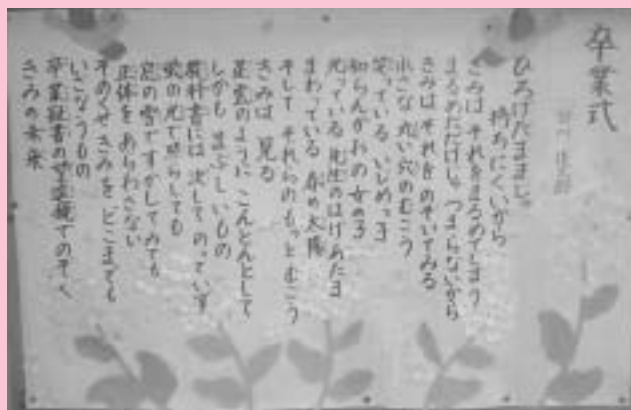 卒業式
ひろげたままじゃ
持ちにくいから
きみはそれをまるめてしまう
まるめただけじゃ つまらないから
きみは それをのぞいてみる
小さな丸い穴のむこう
笑っている いじめっ子
知らんかおの女の子
光っている 先生のはげあたま
まわっている 春の太陽
そして それらのもっとむこう
きみは 見る
星雲のように こんとんとして
しかも まぶしいもの
教科書には 決して のっていず
蛍の光で照らしても
窓の雪ですかしてみても
正体をあらわさない
そのくせきみを どこまでも
いざなうもの
卒業証書の望遠鏡でのぞく
きみの未来